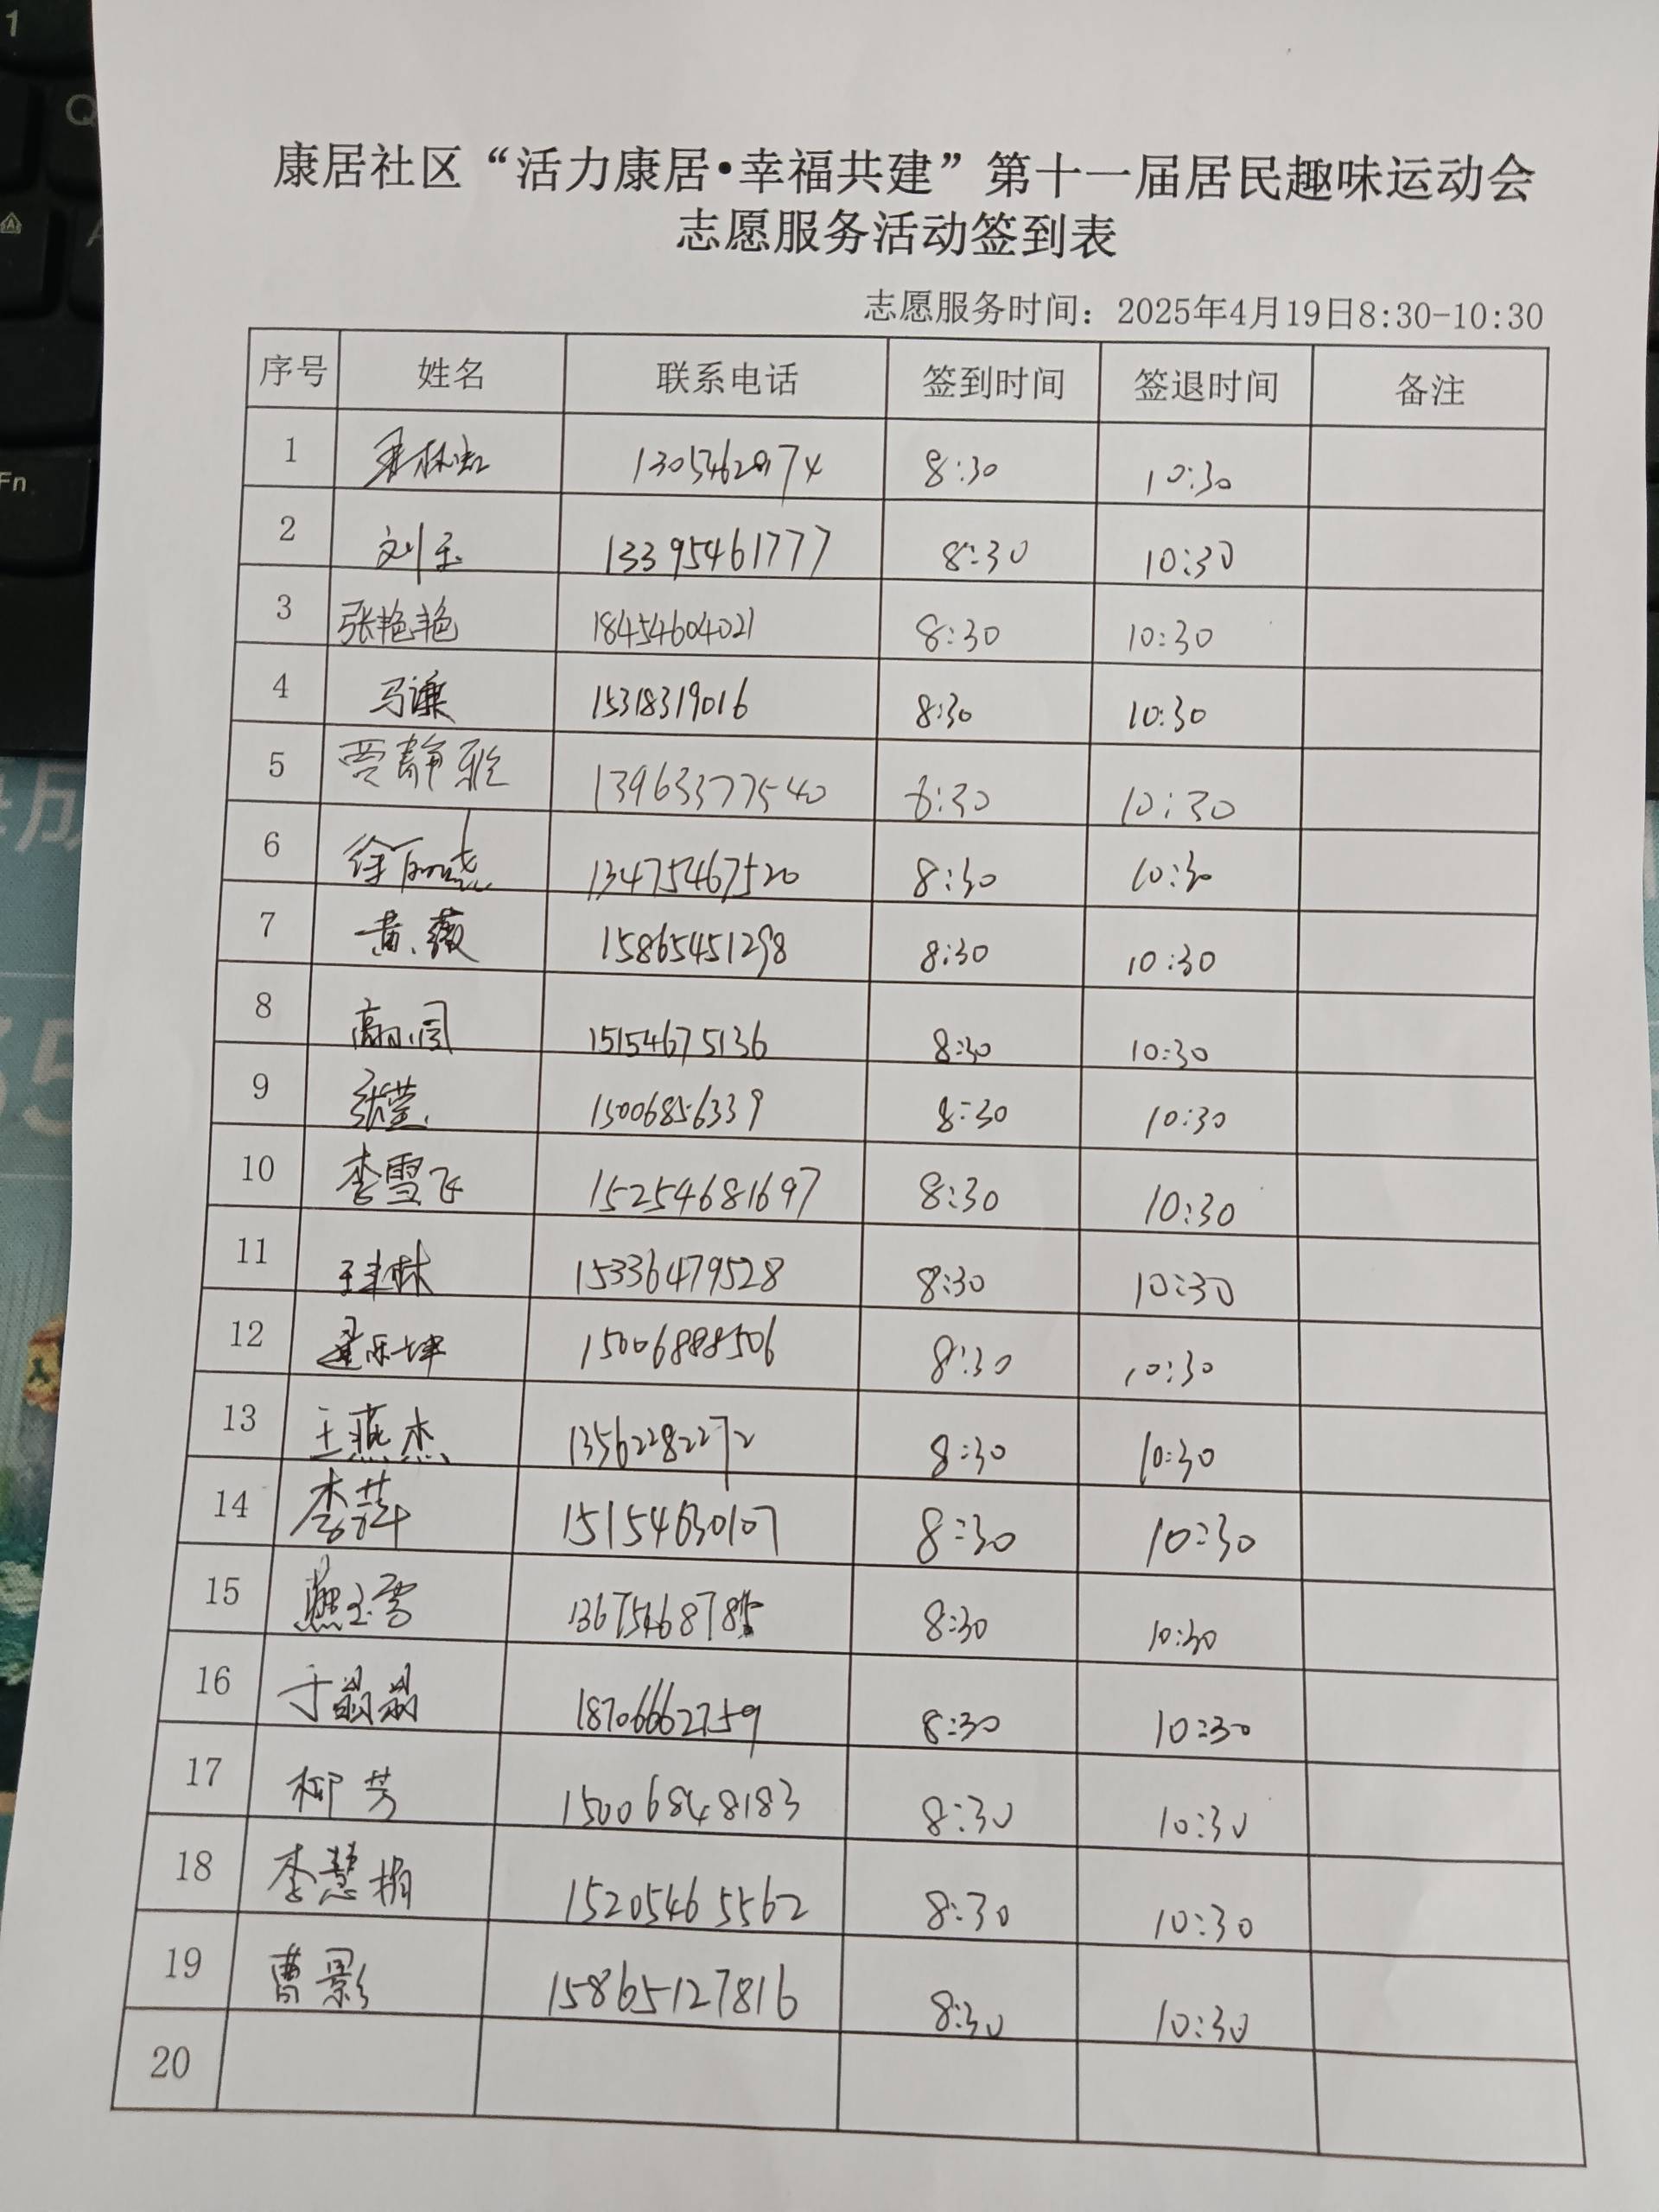 康居社区“活力康居•幸福共建”第十一届居民趣味运动会
志愿服务活动签到表
志愿服务时间：2025年4月19日8:30-10:30
序号 姓名 联系电话 签到时间 签退时间 备注
1 8:30 10:30
2 刘玉 13395461777 8:30 10:30
3 张艳艳 18454604021 8:30 10:30
4 马谦 15318319016 8:30 10:30
5 贾静雅 13963377540 8:30 10:30
6 徐丽晓 13475467520 8:30 10:30
7 黄薇 15865451298 8:30 10:30
8 15154675136 8:30 10:30
9 张莹 15006856339 8:30 10:30
10 李雪飞 15254681697 8:30 10:30
11 15336479528 8:30 10:30
12 15006888506 8:30 10:30
13 王燕杰 13562282272 8:30 10:30
14 李萍 15154630107 8:30 10:30
15 8:30 10:30
16 18706662759 8:30 10:30
17 柳芳 15006848183 8:30 10:30
18 李慧娟 15205465562 8:30 10:30
19 曹影 15865127816 8:30 10:30
20